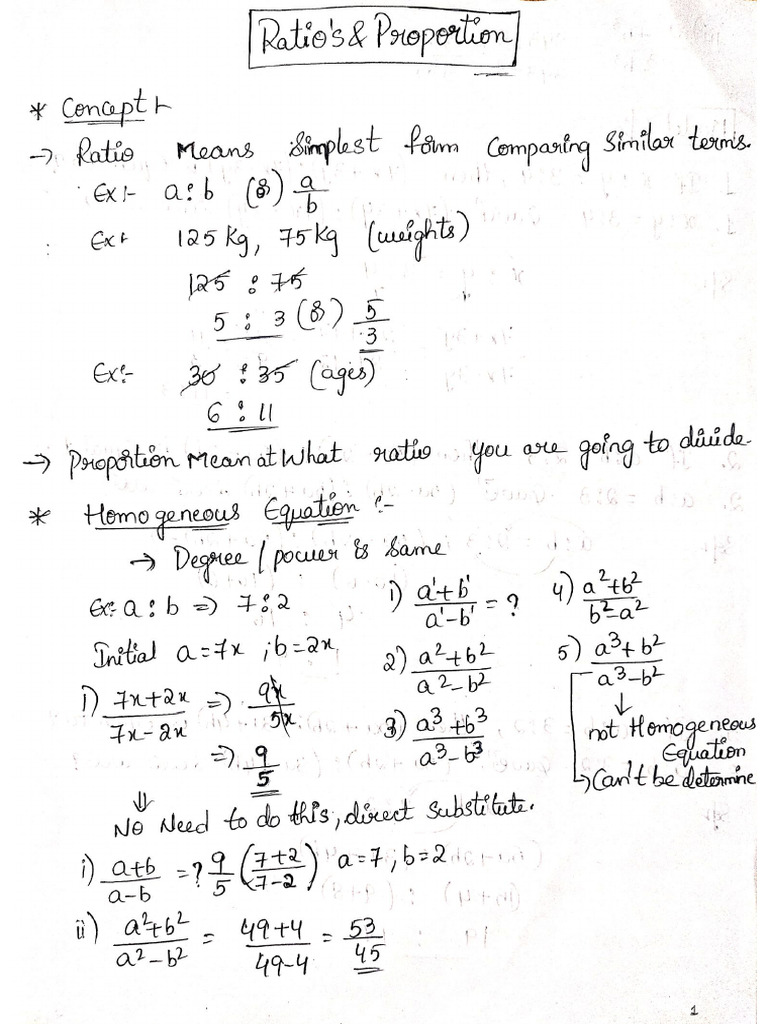 Ratio's & Proportion
* Concept :-
→ Ratio Means Simplest form Comparing Similar terms.
Ex:- a : b (or) a/b
Ex:- 125 kg, 75 kg (weights)
125 : 75
5 : 3 (or) 5/3
Ex:- 30 : 35 (ages)
6 : 11
→ Proportion Mean at What ratio you are going to divide.
* Homogeneous Equation :-
→ Degree / power is same
Ex:- a : b => 7 : 2
Initial a = 7x ; b = 2x
i) 7x+2x / 7x-2x => 9x / 5x
=> 9/5
1) a¹+b¹ / a¹-b¹ = ?
2) a²+b² / a²-b²
3) a³+b³ / a³-b³
4) a²+b² / b²-a²
5) a³+b² / a³-b²
↓
not Homogeneous
Equation
→ Can't be determine
⇓
No Need to do this, direct substitute.
i) a+b / a-b = ? 9/5 (7+2 / 7-2) a=7, b=2
ii) a²+b² / a²-b² = 49+4 / 49-4 = 53/45
1